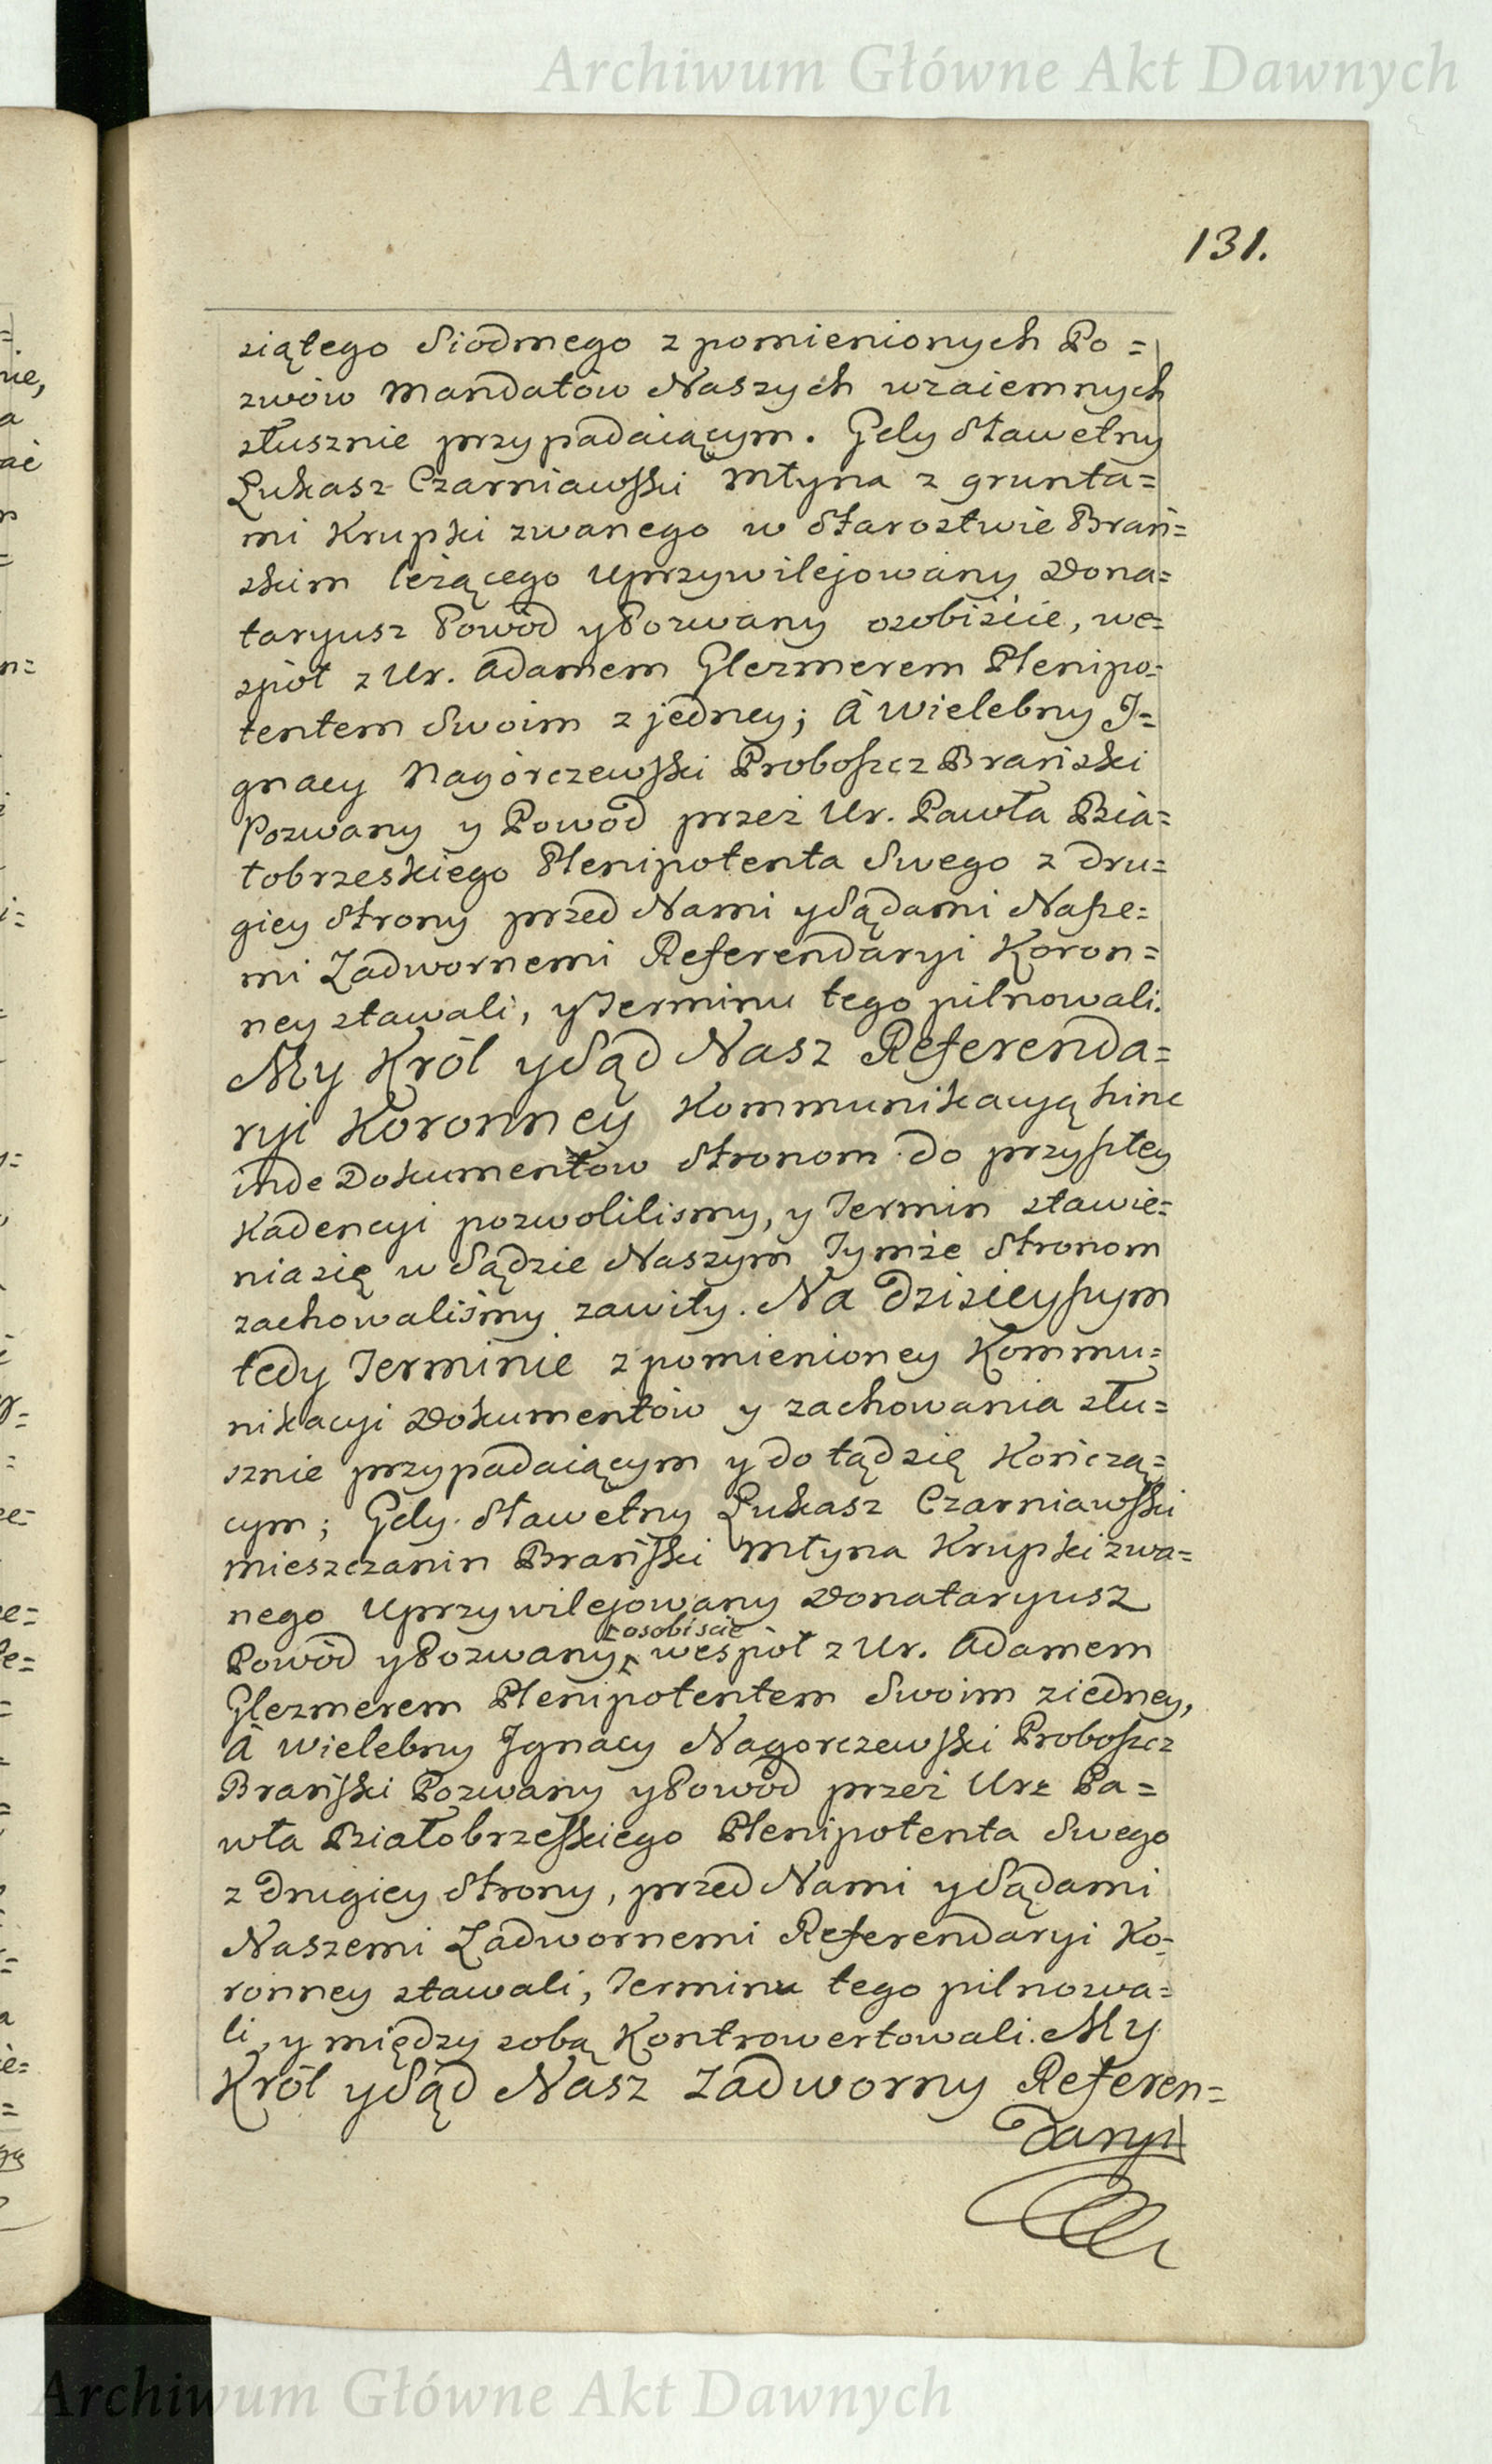 Archiwum Główne Akt Dawnych
131.
siątego Siodmego z pomienionych Po=
zwów Mandatów Naszych wzaiemnych
słusznie przypadaiącym. Gdy Sławetny
Łukasz Czarniawski Młyna z grunta=
mi Krupki zwanego w Starostwie Brań=
skim leżącego Uprzywilejowany Dona=
taryusz Powód y Pozwany osobiście, we=
spół z Ur. Adamem Glezmerem Plenipo=
tentem Swoim z jedney; A Wielebny I=
gnacy Nagórczewski Proboszcz Brański
Pozwany y Powód przez Ur. Pawła Bia=
łobrzeskiego Plenipotenta Swego z dru=
giey Strony przed Nami y Sądami Nasze=
mi Zadwornemi Referendaryi Koron=
ney stawali, y Terminu tego pilnowali.
My Król y Sąd Nasz Referenda=
ryi Koronney Kommunikacyą hinc
inde Dokumentów Stronom do przyszłey
Kadencyi pozwolilismy, y Termin stawie=
nia się w Sądzie Naszym Tymże Stronom
zachowaliśmy zawity. Na Dzisieyszym
tedy Terminie z pomienioney Kommu=
nikacyi Dokumentów y zachowania słu=
sznie przypadaiącym y do tąd się Kończą=
cym; Gdy Sławetny Łukasz Czarniawski
mieszczanin Brański Młyna Krupki zwa=
nego Uprzywilejowany Donataryusz
osobiscie
Powód y Pozwany wespół z Ur. Adamem
Glezmerem Plenipotentem Swoim ziedney,
A Wielebny Jgnacy Nagorczewski Proboszcz
Brański Pozwany y Powód przez Ur. Pa=
wła Białobrzeskiego Plenipotenta Swego
z Drugiey Strony, przed Nami y Sądami
Naszemi Zadwornemi Referendaryi Ko=
ronney stawali, Terminu tego pilnowa=
li, y między sobą Kontrowertowali. My
Król y Sąd Nasz Zadworny Referen=
daryi
Archiwum Główne Akt Dawnych